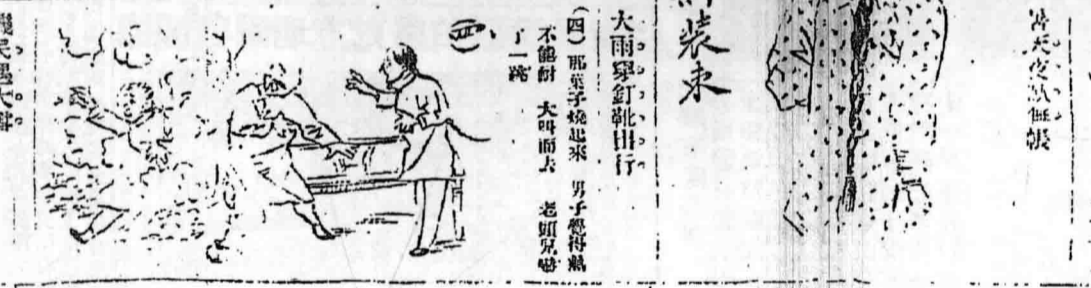 天夜臥
裝束
大雨穿釘靴出行
(四)那葉子燒起來 男子覺得熱
不能耐 大叫而去 老頭兒嚇
了一跳
(四)
民遇大